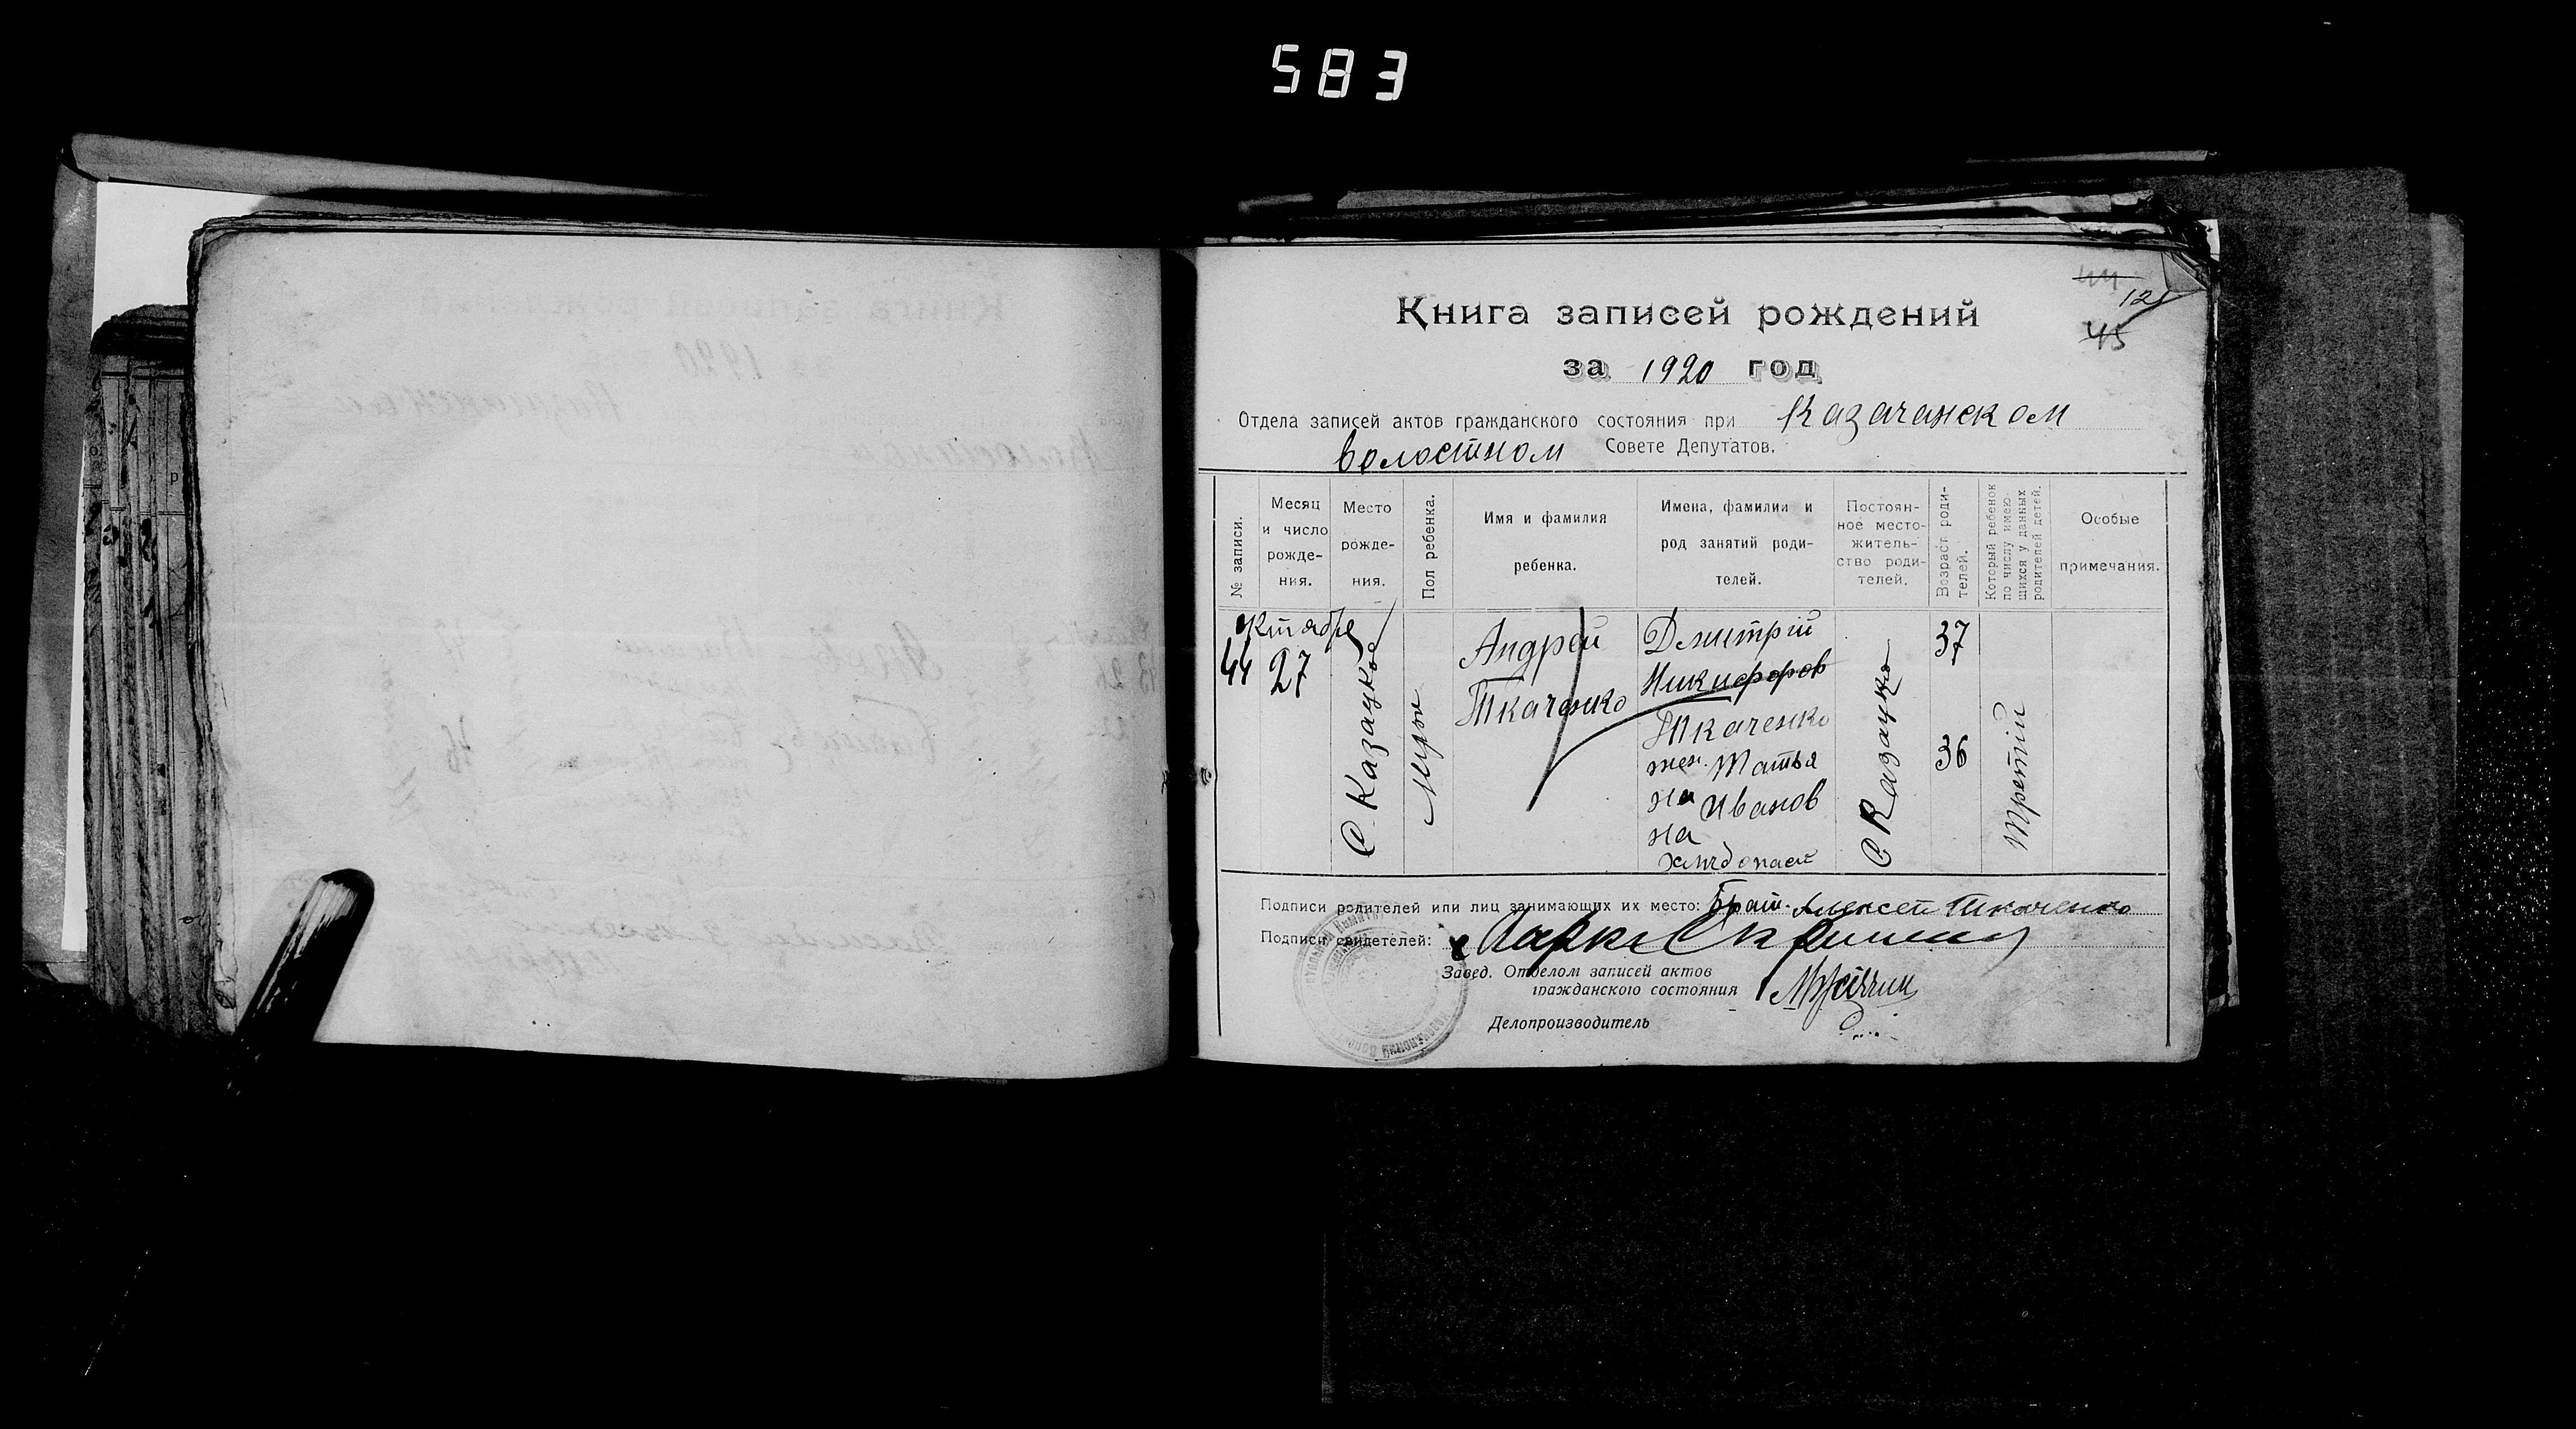 583
44
121
45
Книга записей рождений
за 1920 год
Отдела записей актов гражданского состояния при Казачанском
волостном Совете Депутатов.
№ записи.
Месяц и число рожде- ния.
Место рожде- ния.
Пол ребенка.
Имя и фамилия ребенка.
Имена, фамилии и род занятий роди- телей.
Постоян- ное место- житель- ство роди- телей.
Возраст роди- телей.
Который ребенок по числу имею- щихся у данных родителей детей.
Особые примечания.
октября
44
27
С Казацкое
Муж
Андрей
Ткаченко
Дмитрій
Никифоров
Ткаченко
жен. Татья
на Иванов
на
хлебопаш
С Казацкое
37
36
Третій
Подписи родителей или лиц занимающих их место: Брат. Алексей Ткаченко
Подписи свидетелей:
Завед. Отделом записей актов
гражданского состояния
Делопроизводитель